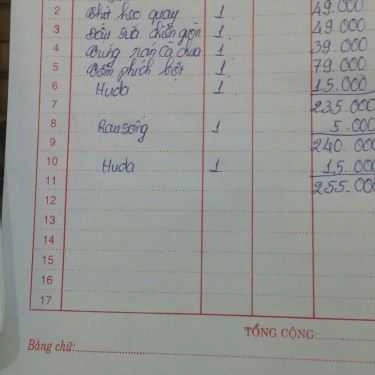 2 Thịt heo quay 1 49.000
3 Đậu sữa chiên giòn 1 49.000
4 Trứng rán cà chua 1 39.000
5 1 79.000
6 Huda 1 15.000
7 235.000
8 Rau sống 1 5.000
9 240.000
10 Huda 1 15.000
11 255.000
12
13
14
15
16
17
TỔNG CỘNG:
Bằng chữ: